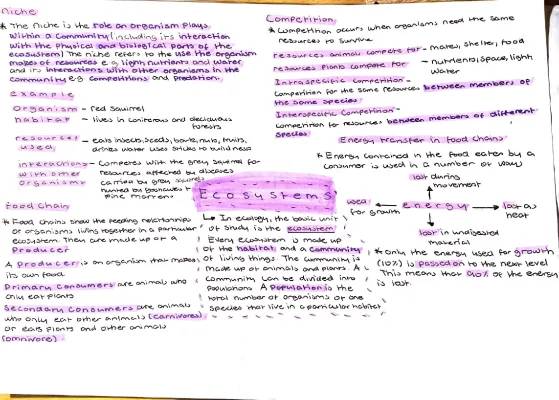 Niche
* The niche is the role an organism plays
within a community (including its interaction
with the physical and biological parts of the
ecosystem) The niche refers to the use the organism
makes of resources e.g light, nutrients and water
and its interactions with other organisms in the
community e.g competitions and predation.
example
organism - red squirrel
habitat - lives in coniferous and deciduous
forests
resources - eats insects, seeds, bark, nuts, fruits,
used drinks water uses sticks to build nests
interactions - competes with the grey squirrel for
with other resources, affected by diseases
organisms carried by grey squirrels
hunted by goshawks +
pine martens
Food Chain
* Food chains show the feeding relationships
of organisms living together in a particular
ecosystem. They are made up of a
Producer
A Producer is an organism that makes
its own food.
Primary Consumers are animals who
only eat plants
Secondary Consumers are animals
who only eat other animals (carnivores)
or eats plants and other animals
(omnivore)
Ecosystems
↳ In ecology, the basic unit
of study is the ecosystem
Every ecosystem is made up
of the habitat and a community
of living things. The community is
made up of animals and plants. A
community can be divided into
populations. A population is the
total number of organisms of one
species that live in a particular habitat
Competition
* Competition occurs when organisms need the same
resources to survive
resources animals compete for - mates, shelter, food
resources plants compete for - nutrients, space, light
water
Intraspecific competition -
Competition for the same resources between members of
the same species
Interspecific competition -
Competition for resources between members of different
species
Energy transfer in food chains
* Energy contained in the food eaten by a
consumer is used in a number of ways
lost during
movement
used
for growth
energy
lost as
heat
lost in undigested
material
* Only the energy used for growth
(10%) is passed on to the next level
This means that 90% of the energy
is lost.